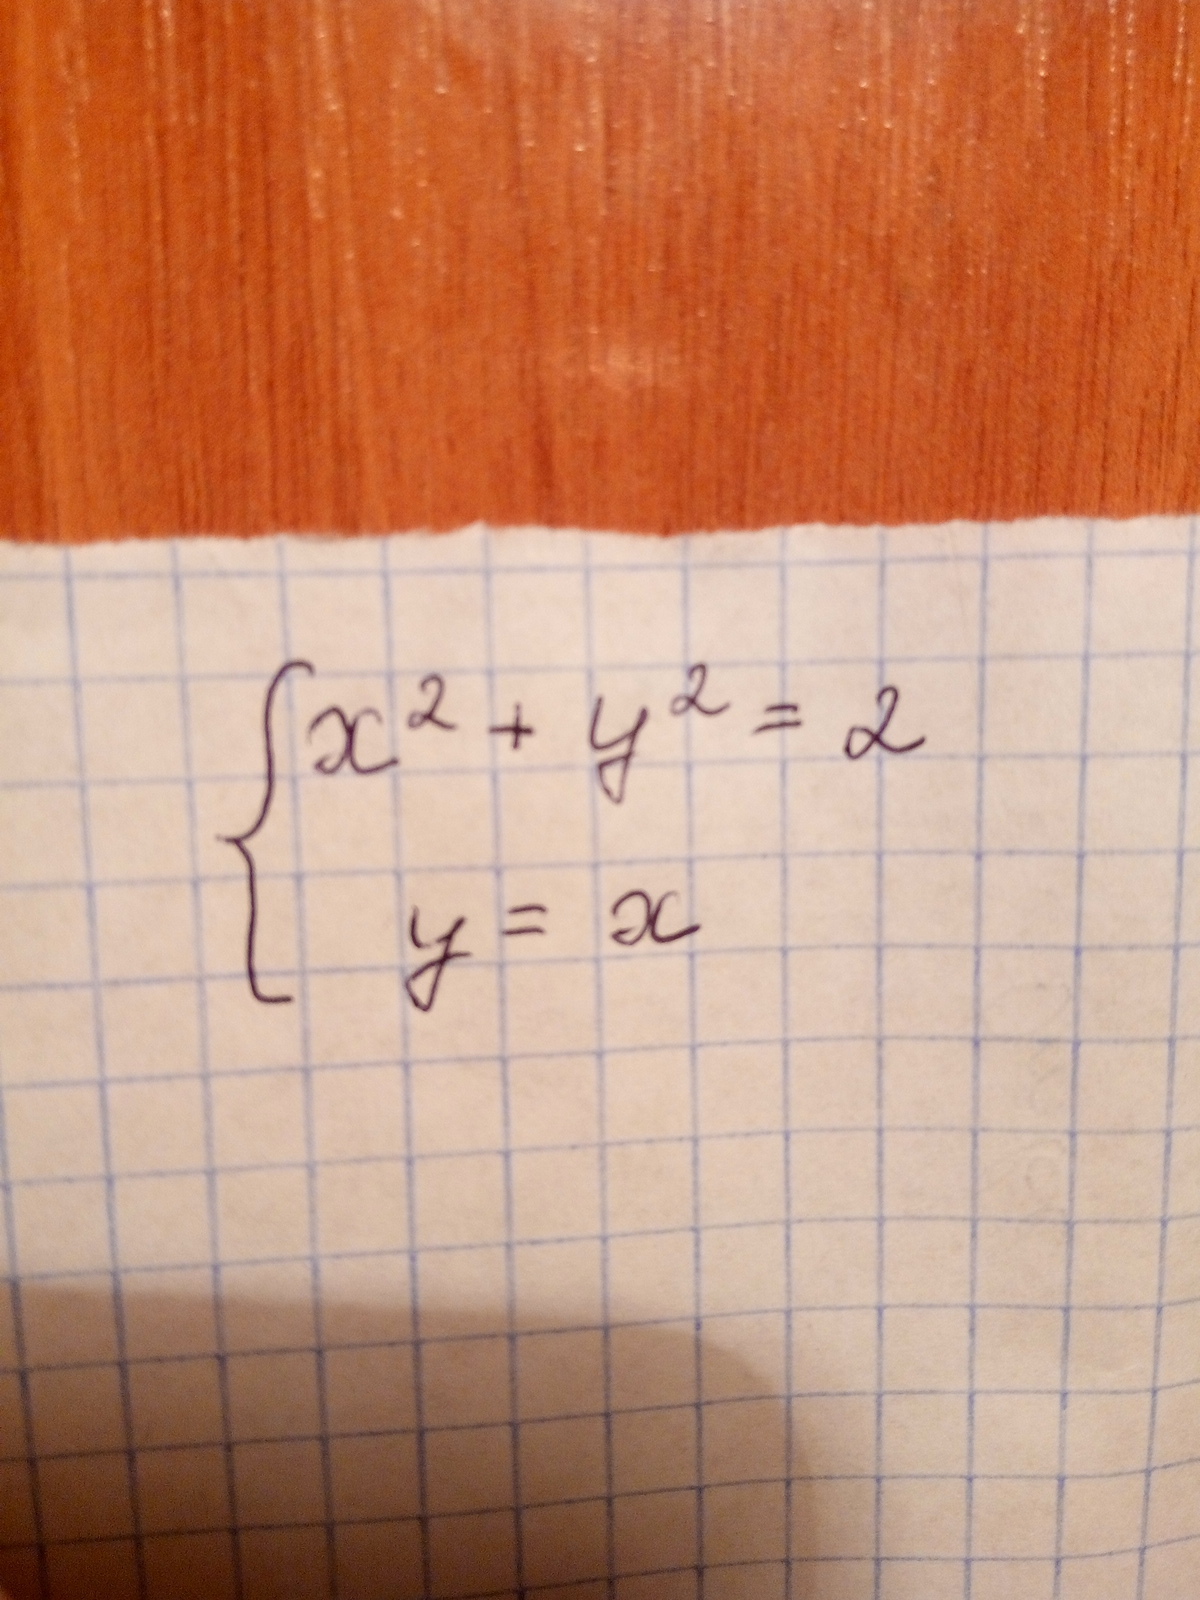 x² + y² = 2
y = x